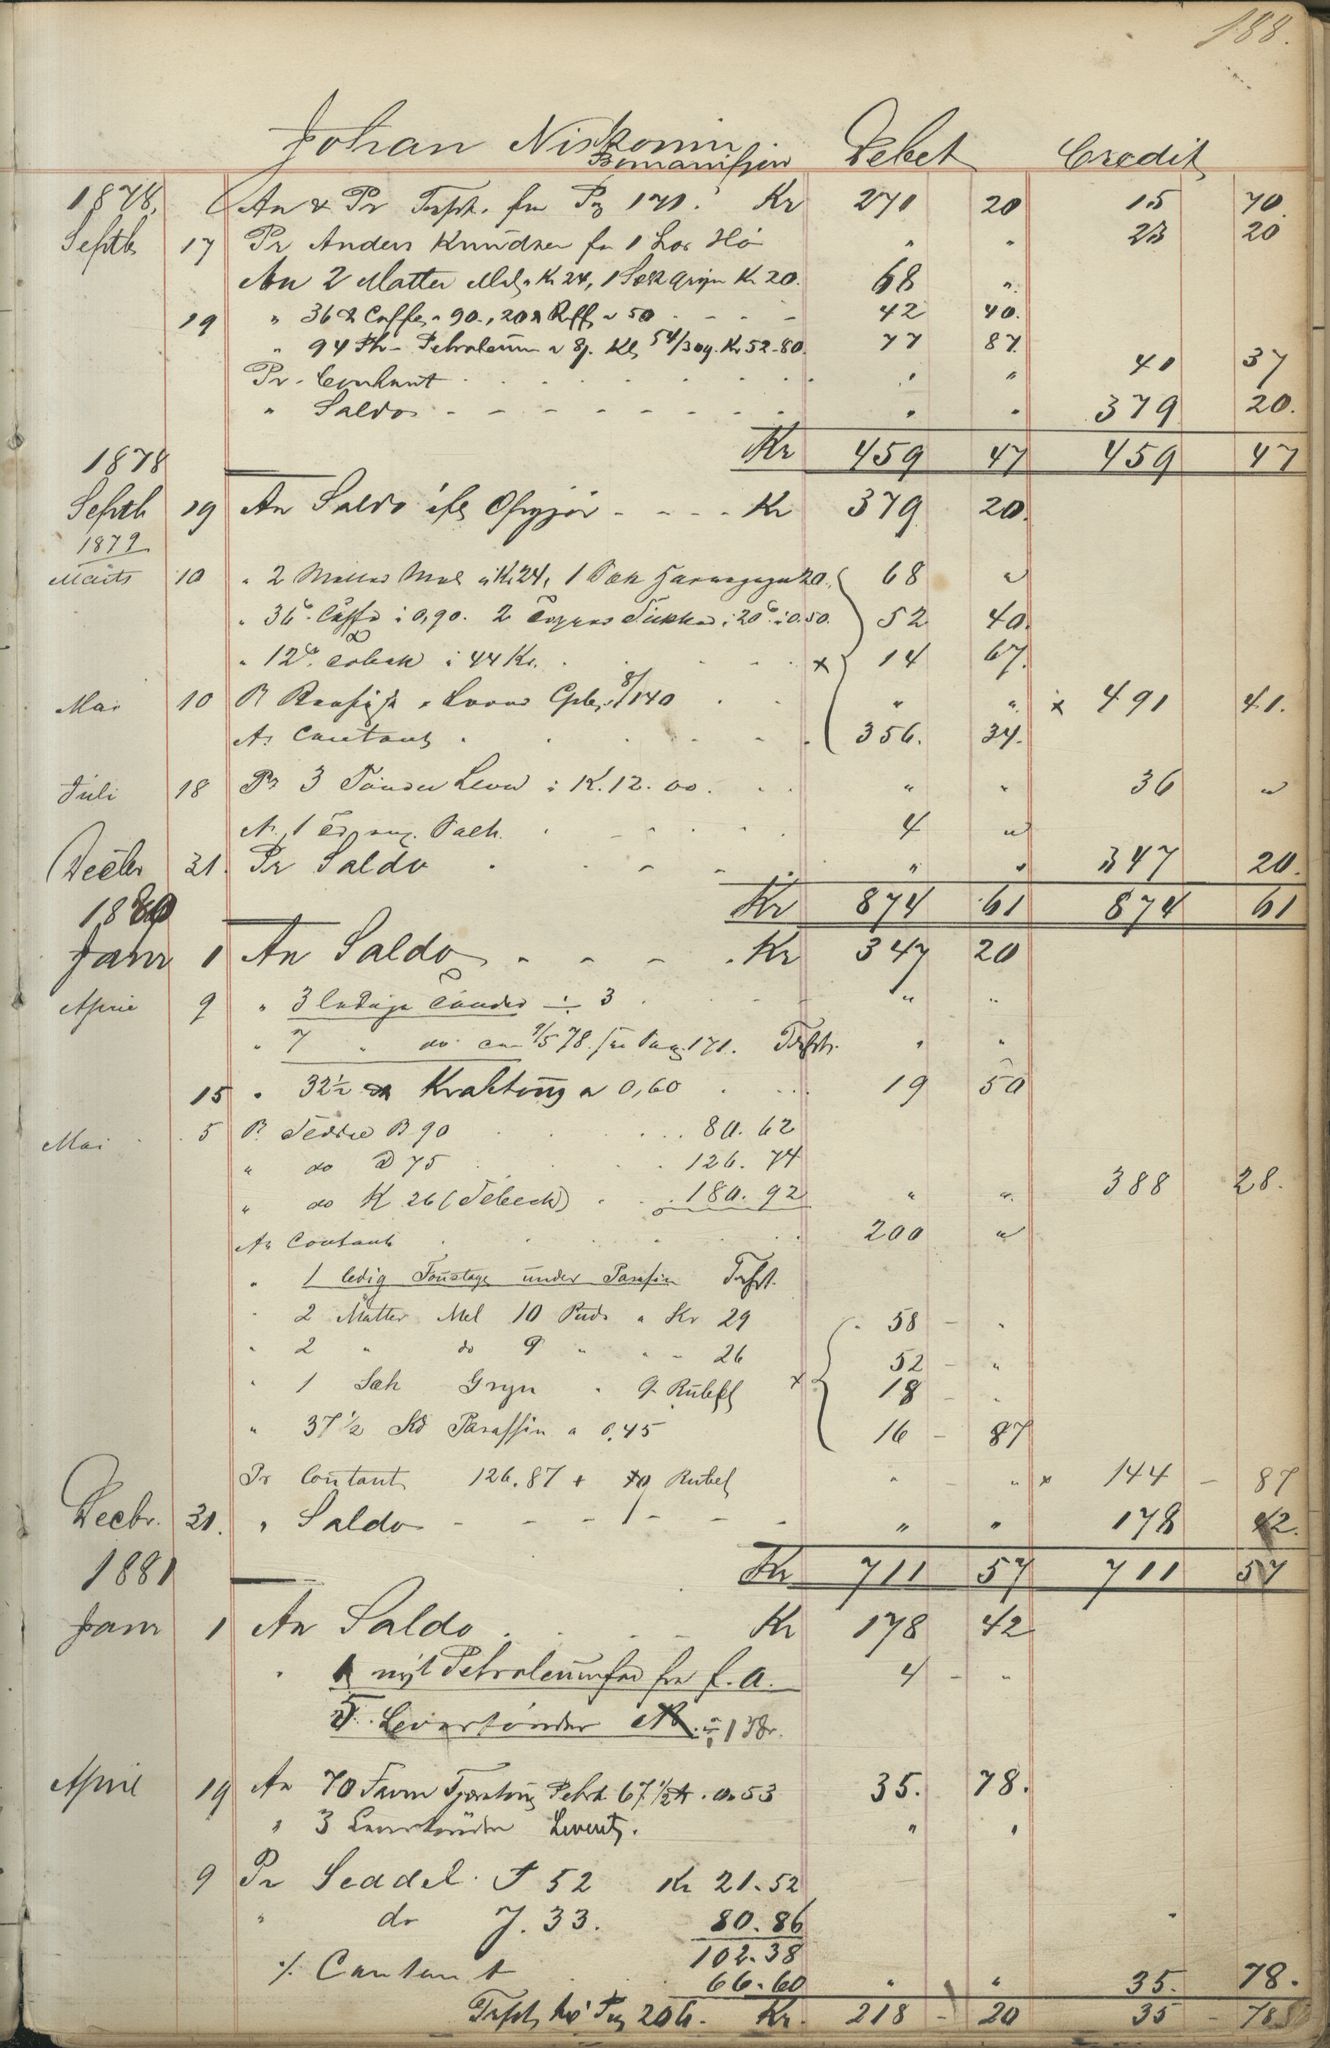 188.
Johan Niskonin Debet Credit
Bomanifjon
1878. An & Pr Trfrt. fra Pg 171. Kr 271 20 15 70
Septb 17 Pr Anders Knudsen for 1 Las Hö " " 23 20
An 2 Matter Mel a Kr 24, 1 Sæk Gryn Kr 20. 68 "
19 " 36 ℔ Caffe a 90., 20 ℔ Raff a 50 42 40.
" 94 ℔ Petroleum a 8 Kr 52-80. 77 87
Pr. Contant " " 40 37
" Saldo " " 379 20.
Kr 459 47 459 47
1878
Septb 19 An Saldo ifg Opgjör Kr 379 20.
1879
Marts 10 " 2 Matter Mel a Kr 24, 1 Sæk 20. 68 "
" 36 Caffe a 0,90. 2 Sukker 20 a 0.50. 52 40.
" 12 Tobak a 44 Kr. x 14 67.
Mai 10 Pr 8/140 " " x 491 41.
An Contant 356. 34.
Juli 18 Pr 3 Tönder Lever a K. 12.00. " " 36 "
An 1 Salt. 4 "
Decbr 31. Pr Saldo " " 347 20.
Kr 874 61 874 61
1880
Janr 1 An Saldo Kr 347 20
April 9 " 3 ledige Tönder ÷ 3 " "
" 7 " do 9/5 78. fra Pag. 171. Trfrt. " "
15 " 32½ ℔ Kraktoug a 0,60 19 50
Mai 5 Pr Seddel B 90 80.62
" do D 75 126.74
" do K 26 (Tebeck) 180.92 " " 388 28.
An Contant 200 "
" 1 ledig Foustage under Parafin Trfrt.
" 2 Matter Mel 10 Pud a Kr 29 58 - "
" 2 " do 9 " " - 26 52 - "
" 1 Sæk Gryn " 9 Rubel x 18 - "
" 37½ Ko Paraffin a 0,45 16 - 87
Pr Contant 126.87 + 10 Rubel " " x 144 - 87
Decbr. 31. " Saldo " " 178 42.
Kr 711 57 711 57
1881
Janr 1 An Saldo Kr 178 42
" 1 nyt Petroleumfad fra f.a. 4 - "
5 Levertönder ÷ 1 Tdr.
April 19 An 70 Favn Tjæretoug Petrd 67½ ℔ a 0.53 35. 78.
" 3 Levertönder Levert. " "
9 Pr Seddel. T 52 Kr 21.52
" do J. 33. 80.86
102.38
% Contant 66.60 " " 35. 78.
Trfrt til Pag 206. Kr. 218 - 20 35 - 78